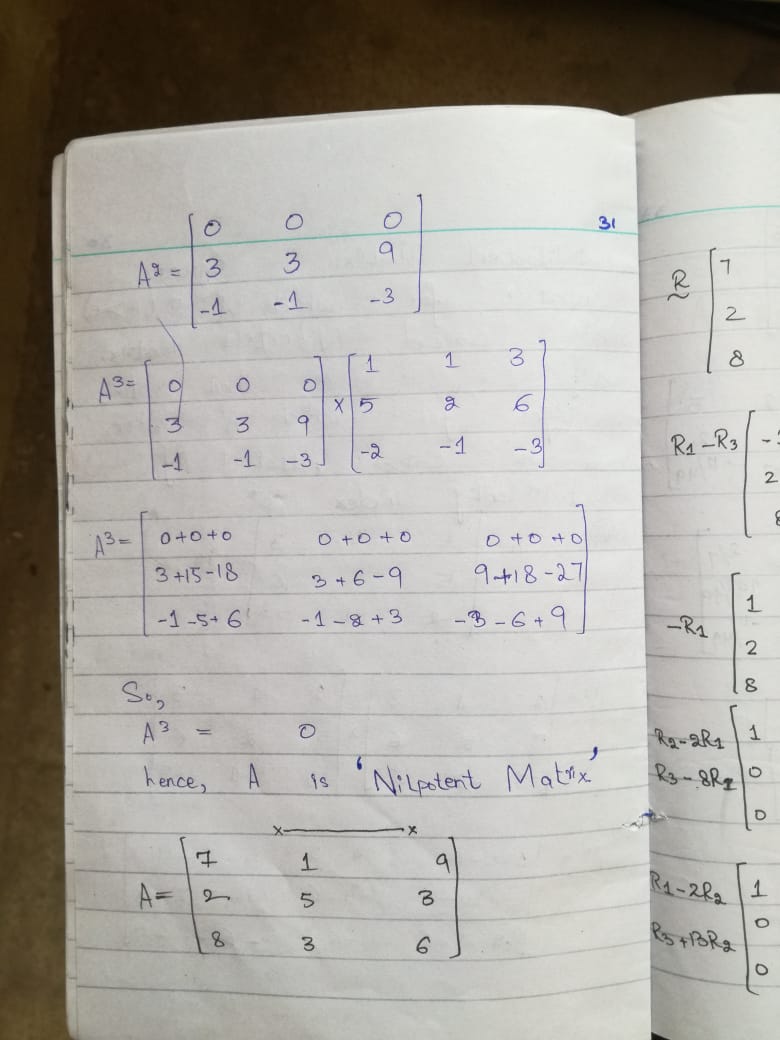 31
A² = [ 0 0 0
3 3 9
-1 -1 -3 ]
A³ = [ 0 0 0 ] × [ 1 1 3
3 3 9 5 2 6
-1 -1 -3 -2 -1 -3 ]
A³ = [ 0+0+0 0+0+0 0+0+0
3+15-18 3+6-9 9+18-27
-1-5+6 -1-2+3 -3-6+9 ]
So,
A³ = 0
hence, A is 'Nilpotent Matrix'
x———x
A = [ 7 1 9
2 5 3
8 3 6 ]
R [ 7
2
8
R1-R3 [
2
8
-R1 [ 1
2
8
R2-2R1 [ 1
R3-8R1 0
0
R1-2R2 [ 1
0
R3+13R2
0